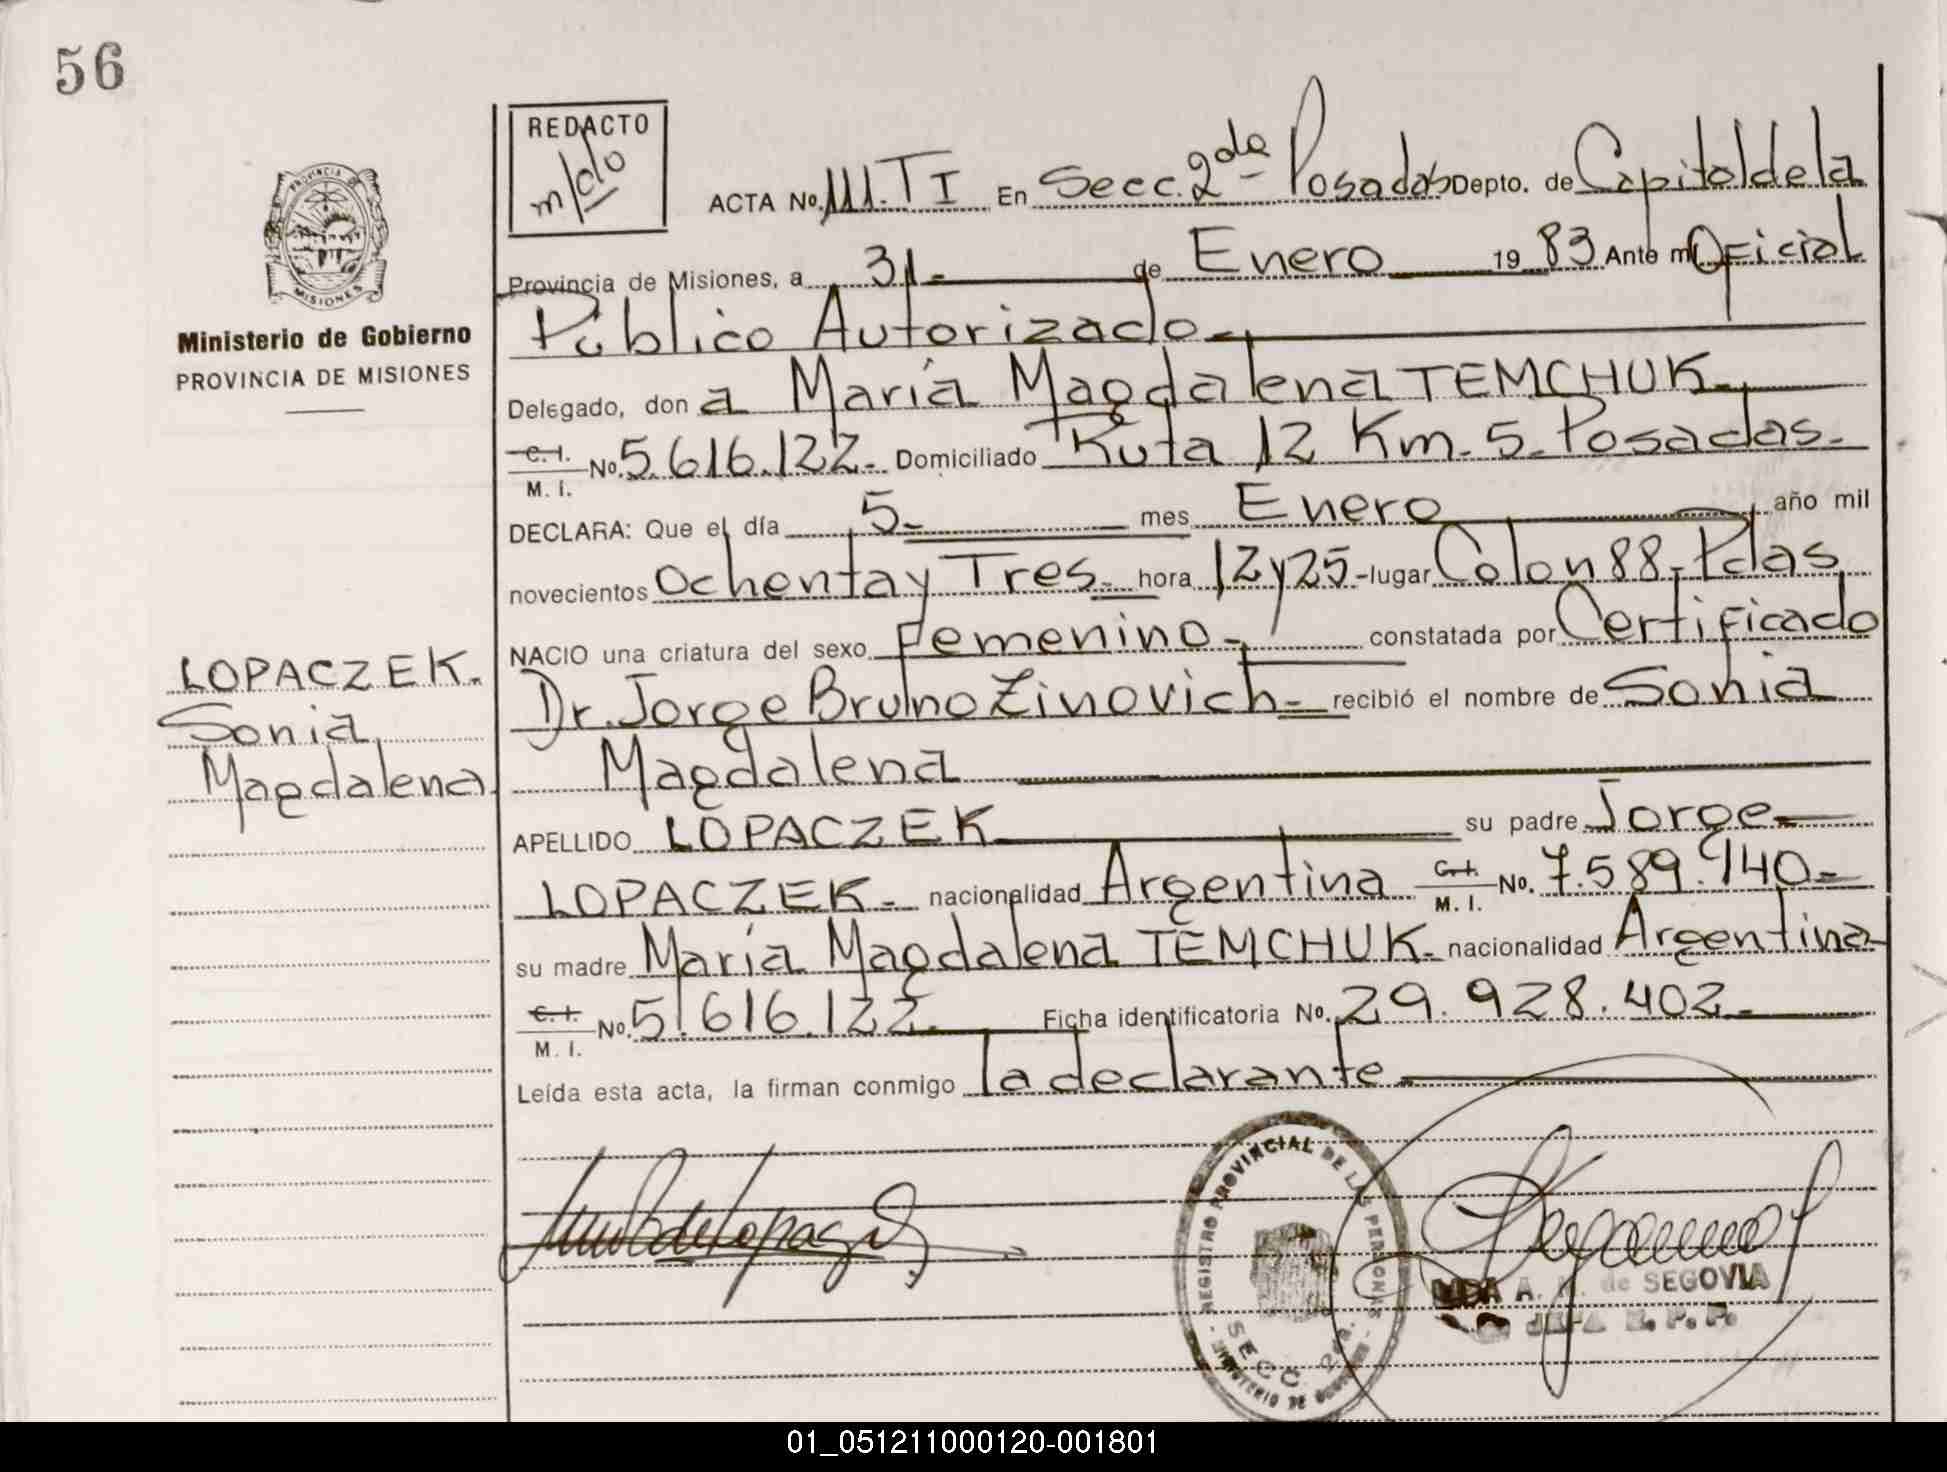 56
REDACTO
m/do
ACTA No. 111.TI En Secc. 2da Posadas Depto. de Capital de la
Provincia de Misiones, a 31- de Enero 19 83 Ante mi Oficial
Público Autorizado-
PROVINCIA DE MISIONES
Ministerio de Gobierno
PROVINCIA DE MISIONES
Delegado, don a María Magdalena TEMCHUK-
C. I. M. I. No. 5.616.122- Domiciliado Ruta 12 Km. 5. Posadas.
DECLARA: Que el día 5- mes Enero año mil
novecientos Ochenta y Tres- hora 12 y 25- lugar Colon 88- Pdas
NACIO una criatura del sexo Femenino- constatada por Certificado
Dr. Jorge Bruno Zinovich- recibió el nombre de Sonia
Magdalena
LOPACZEK.
Sonia
Magdalena
APELLIDO LOPACZEK su padre Jorge
LOPACZEK- nacionalidad Argentina C. I. M. I. No. 7.589.940-
su madre María Magdalena TEMCHUK- nacionalidad Argentina
C. I. M. I. No. 5.616.122- Ficha identificatoria No. 29.928.402-
Leída esta acta, la firman conmigo la declarante-
REGISTRO PROVINCIAL DE LAS PERSONAS
SECC. 2da.
MINISTERIO DE GOBIERNO
A. de SEGOVIA
JEFA
01_051211000120-001801